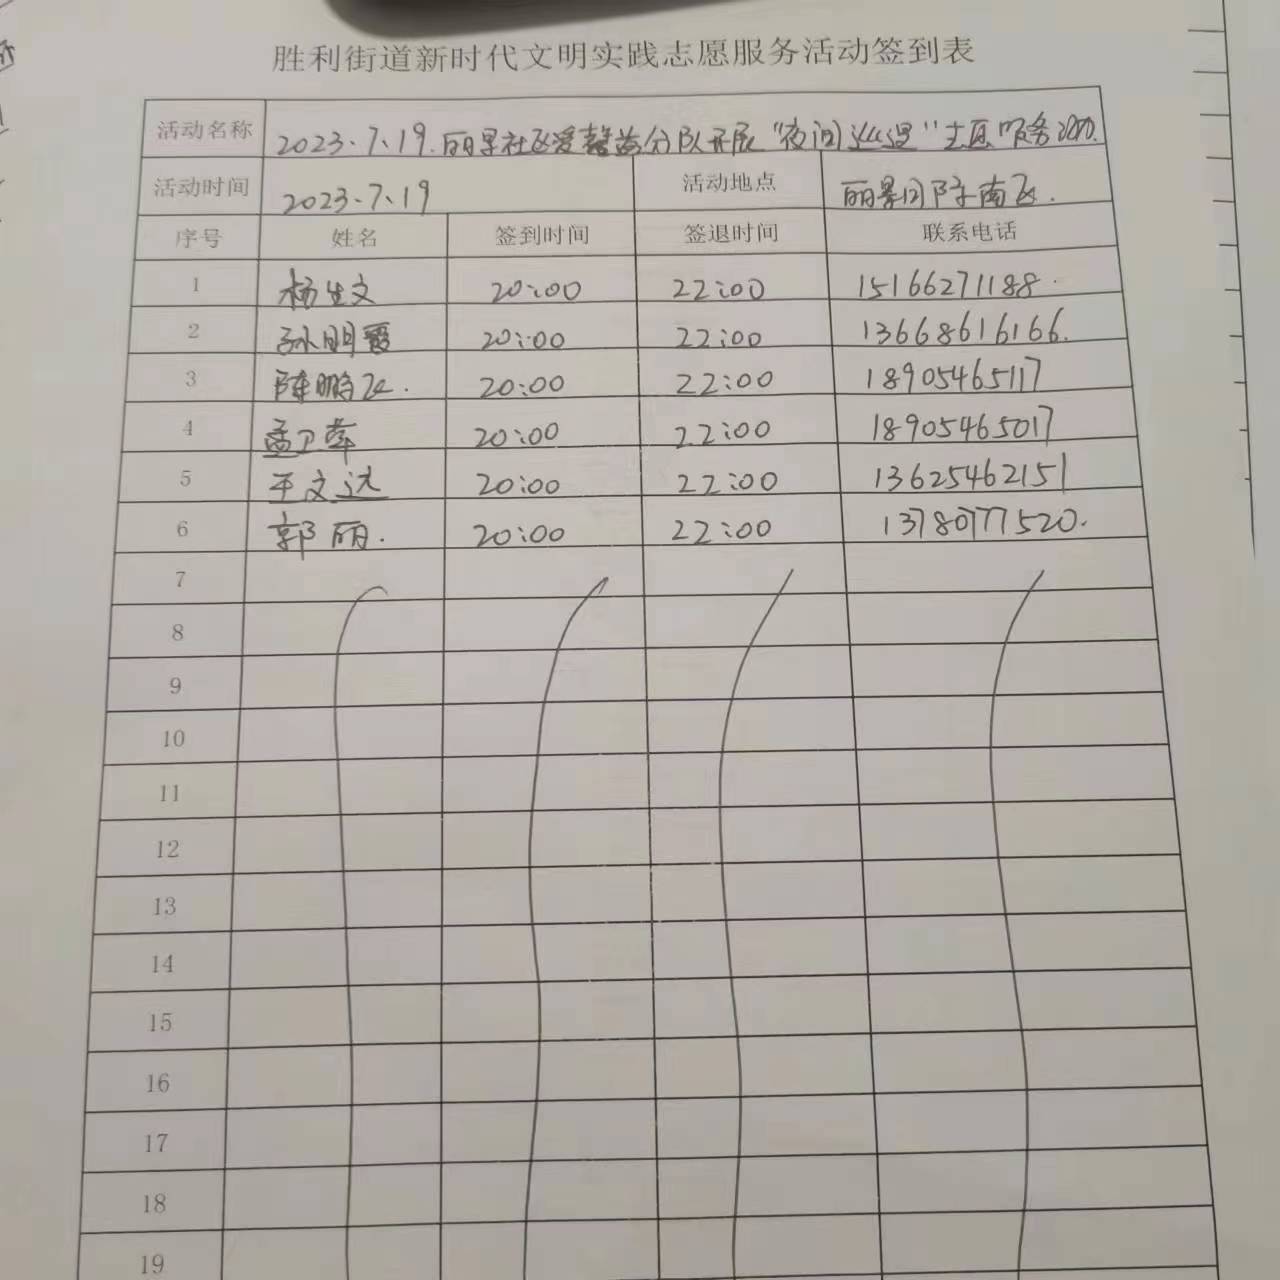 胜利街道新时代文明实践志愿服务活动签到表
活动名称 2023.7.19.丽景社区爱馨分队开展"夜间巡逻"志愿服务活动.
活动时间 2023.7.19 活动地点 丽景园南区.
序号 姓名 签到时间 签退时间 联系电话
1 杨生文 20:00 22:00 15166271188.
2 孙明霞 20:00 22:00 13668616166.
3 陈鹏飞. 20:00 22:00 18905465117
4 孟卫华 20:00 22:00 18905465017
5 文远 20:00 22:00 13625462151
6 郭丽. 20:00 22:00 13780777520.
7
8
9
10
11
12
13
14
15
16
17
18
19